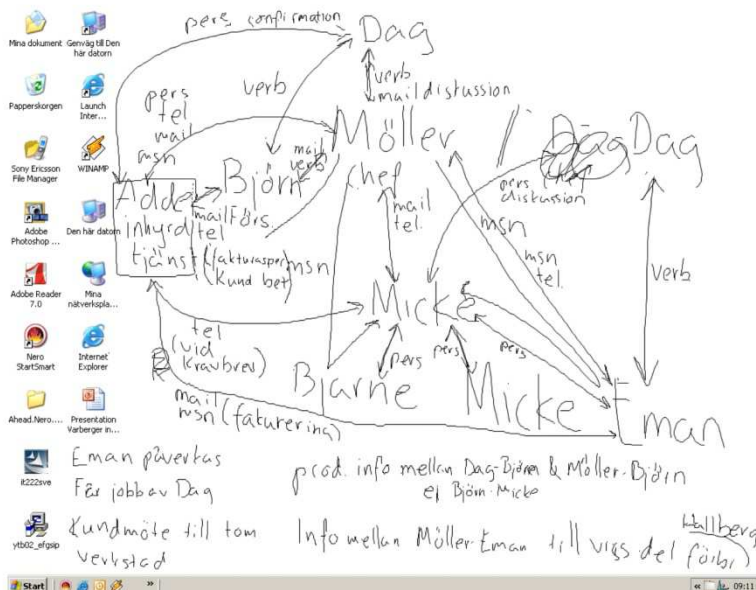 Mina dokument
Genväg till Den här datorn
Papperskorgen
Launch Inter...
Sony Ericsson File Manager
WINAMP
Adobe Photoshop ...
Den här datorn
Adobe Reader 7.0
Mina nätverkspla...
Nero StartSmart
Internet Explorer
Ahead.Nero....
Presentation Varberger in...
it222sve
ytb02_efgsip
pers confirmation
Dag
verb
mail diskussion
verb
pers
tel
mail
msn
Möller
chef
mail
verb
Björn
Förs.
Adde
inhyrd
tjänst
mail
tel
(fakturasper
Kund bet)
msn
mail
tel.
Dag
pers
diskussion
msn
msn
tel.
verb
Micke
tel
(vid
kravbrev)
pers
pers
pers
Bjarne
Micke
Eman
mail
msn (fakturering)
Eman påverkas
Får jobb av Dag
prod. info mellan Dag-Björn & Möller-Björn
ej Björn-Micke
Kundmöte till tom
verkstad
Info mellan Möller-Eman till viss del förbi
Hallberg
Start
09:11